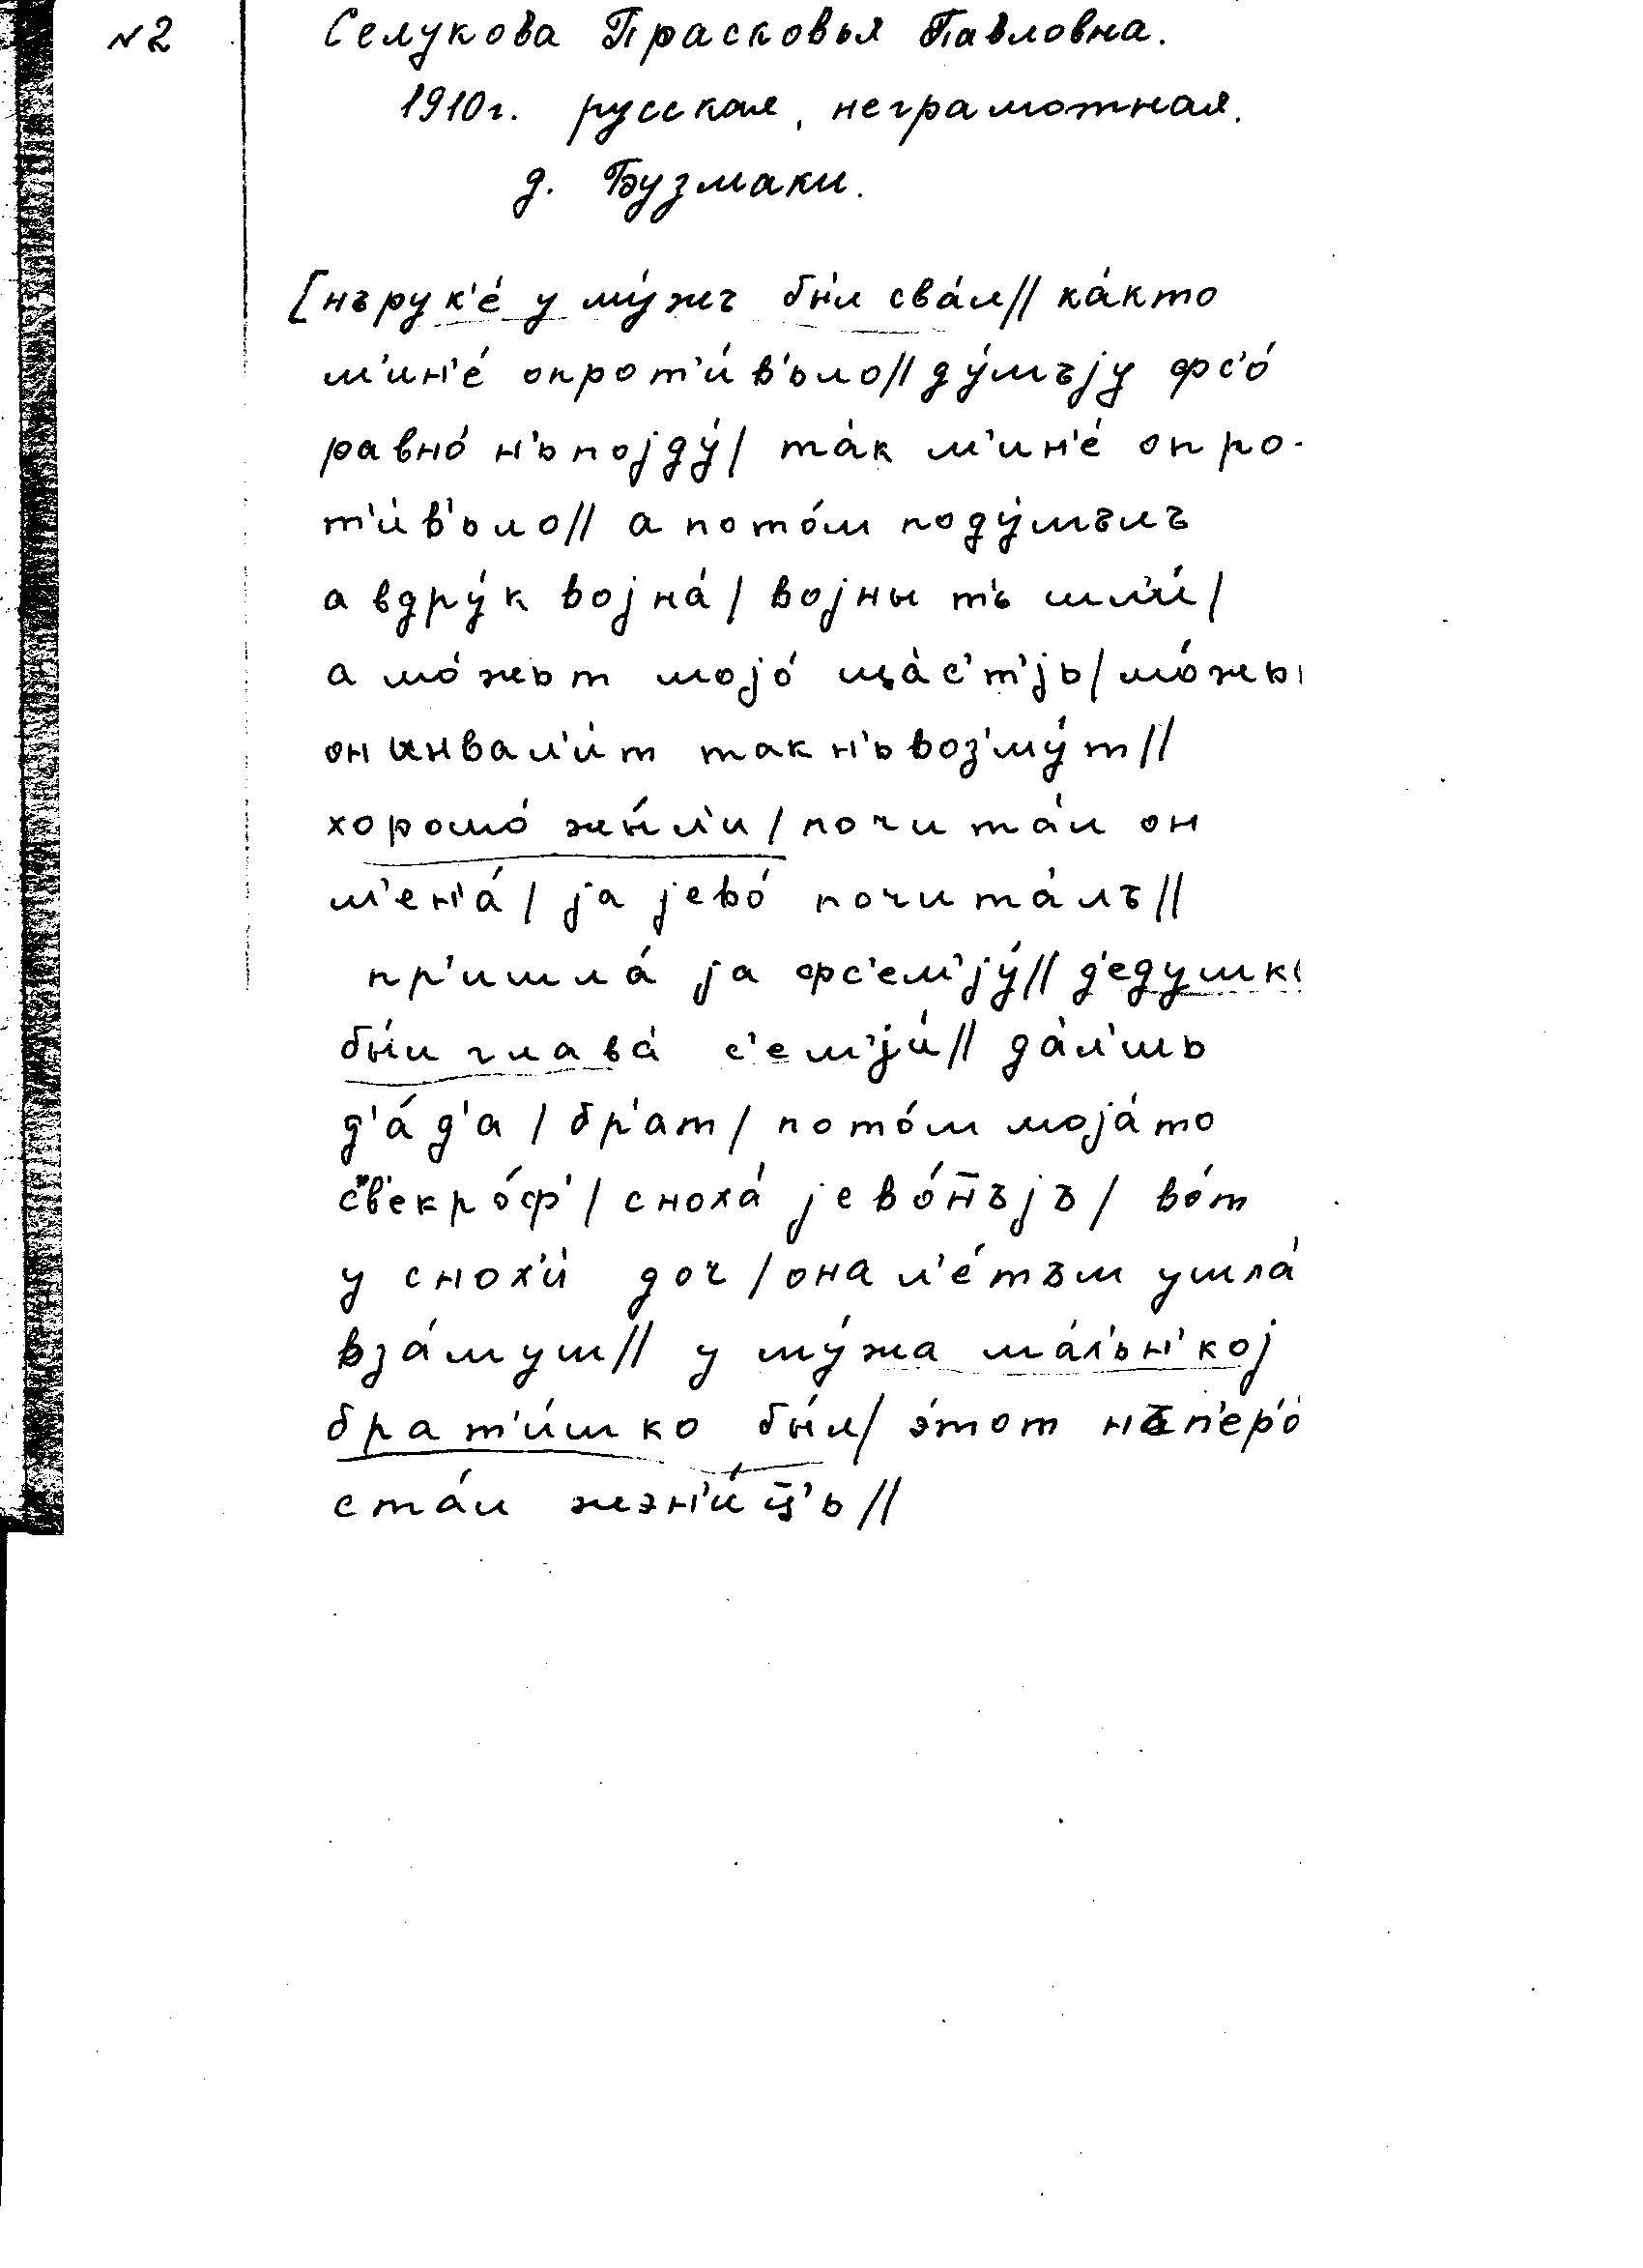 №2 Селукова Прасковья Павловна.
1910г. русская, неграмотная.
д. Бузмаки.
[нъ рук'е́ у му́жъ бы́л сва́л// ка́кто
м'ин'е́ опрот'и́в'ьло// ду́мъjу фс'о́
равно́ н'ь поjду́/ та́к м'ин'е́ опро-
т'и́в'ьло// а пото́м поду́мълъ
а вдру́к воjна́/ воjны т'ь шл'и́/
а мо́жьт моjо́ ща́с'т'jь/ мо́жь
он инвал'и́т так н'ь воз'му́т//
хорошо́ жы́л'и/ почита́л он
м'ен'а́/ jа jево́ почита́лъ//
пр'ишла́ jа фс'ем'jу́// д'едушк
бы́л глава́ с'ем'jи́// да́л'шь
д'а́д'а/ бр'ат/ пото́м моjа́то
с'в'екро́ф'/ сноха́ jево́н̄ъjъ/ во́т
у снох'и́ доч/ она л'е́тъм ушла́
вза́муш// у му́жа ма́л'ьн'коj
брат'и́шко бы́л/ э́тот нъп'ер'о́
ста́л жэн'и́ц̄'ь//